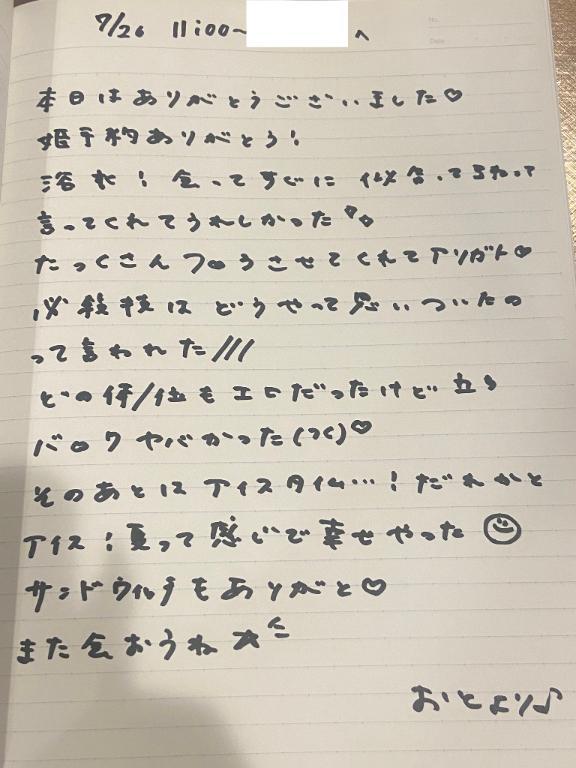 7/26 11:00~ へ
No.
Date
本日はありがとうございました♡
姫予約ありがとう!
浴衣!会ってすぐに似合ってるねって
言ってくれてうれしかった
たっくさんフロうさせてくれてアリガト♡
必殺技はどうやって思いついたの
って言われた///
どの体/位もエロだったけど立ち
バックヤバかった(つく)♡
そのあとはアイスタイム…!だれかと
アイス!夏って感じで幸せやった
サンドウィッチもありがと♡
また会おうね☆
おとより♪